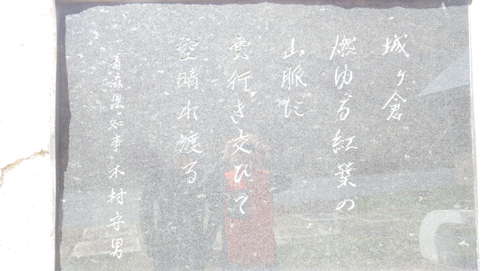 城ヶ倉
燃ゆる紅葉の
山脈に
雲行き交ひて
空晴れ渡る
青森県知事 木村守男